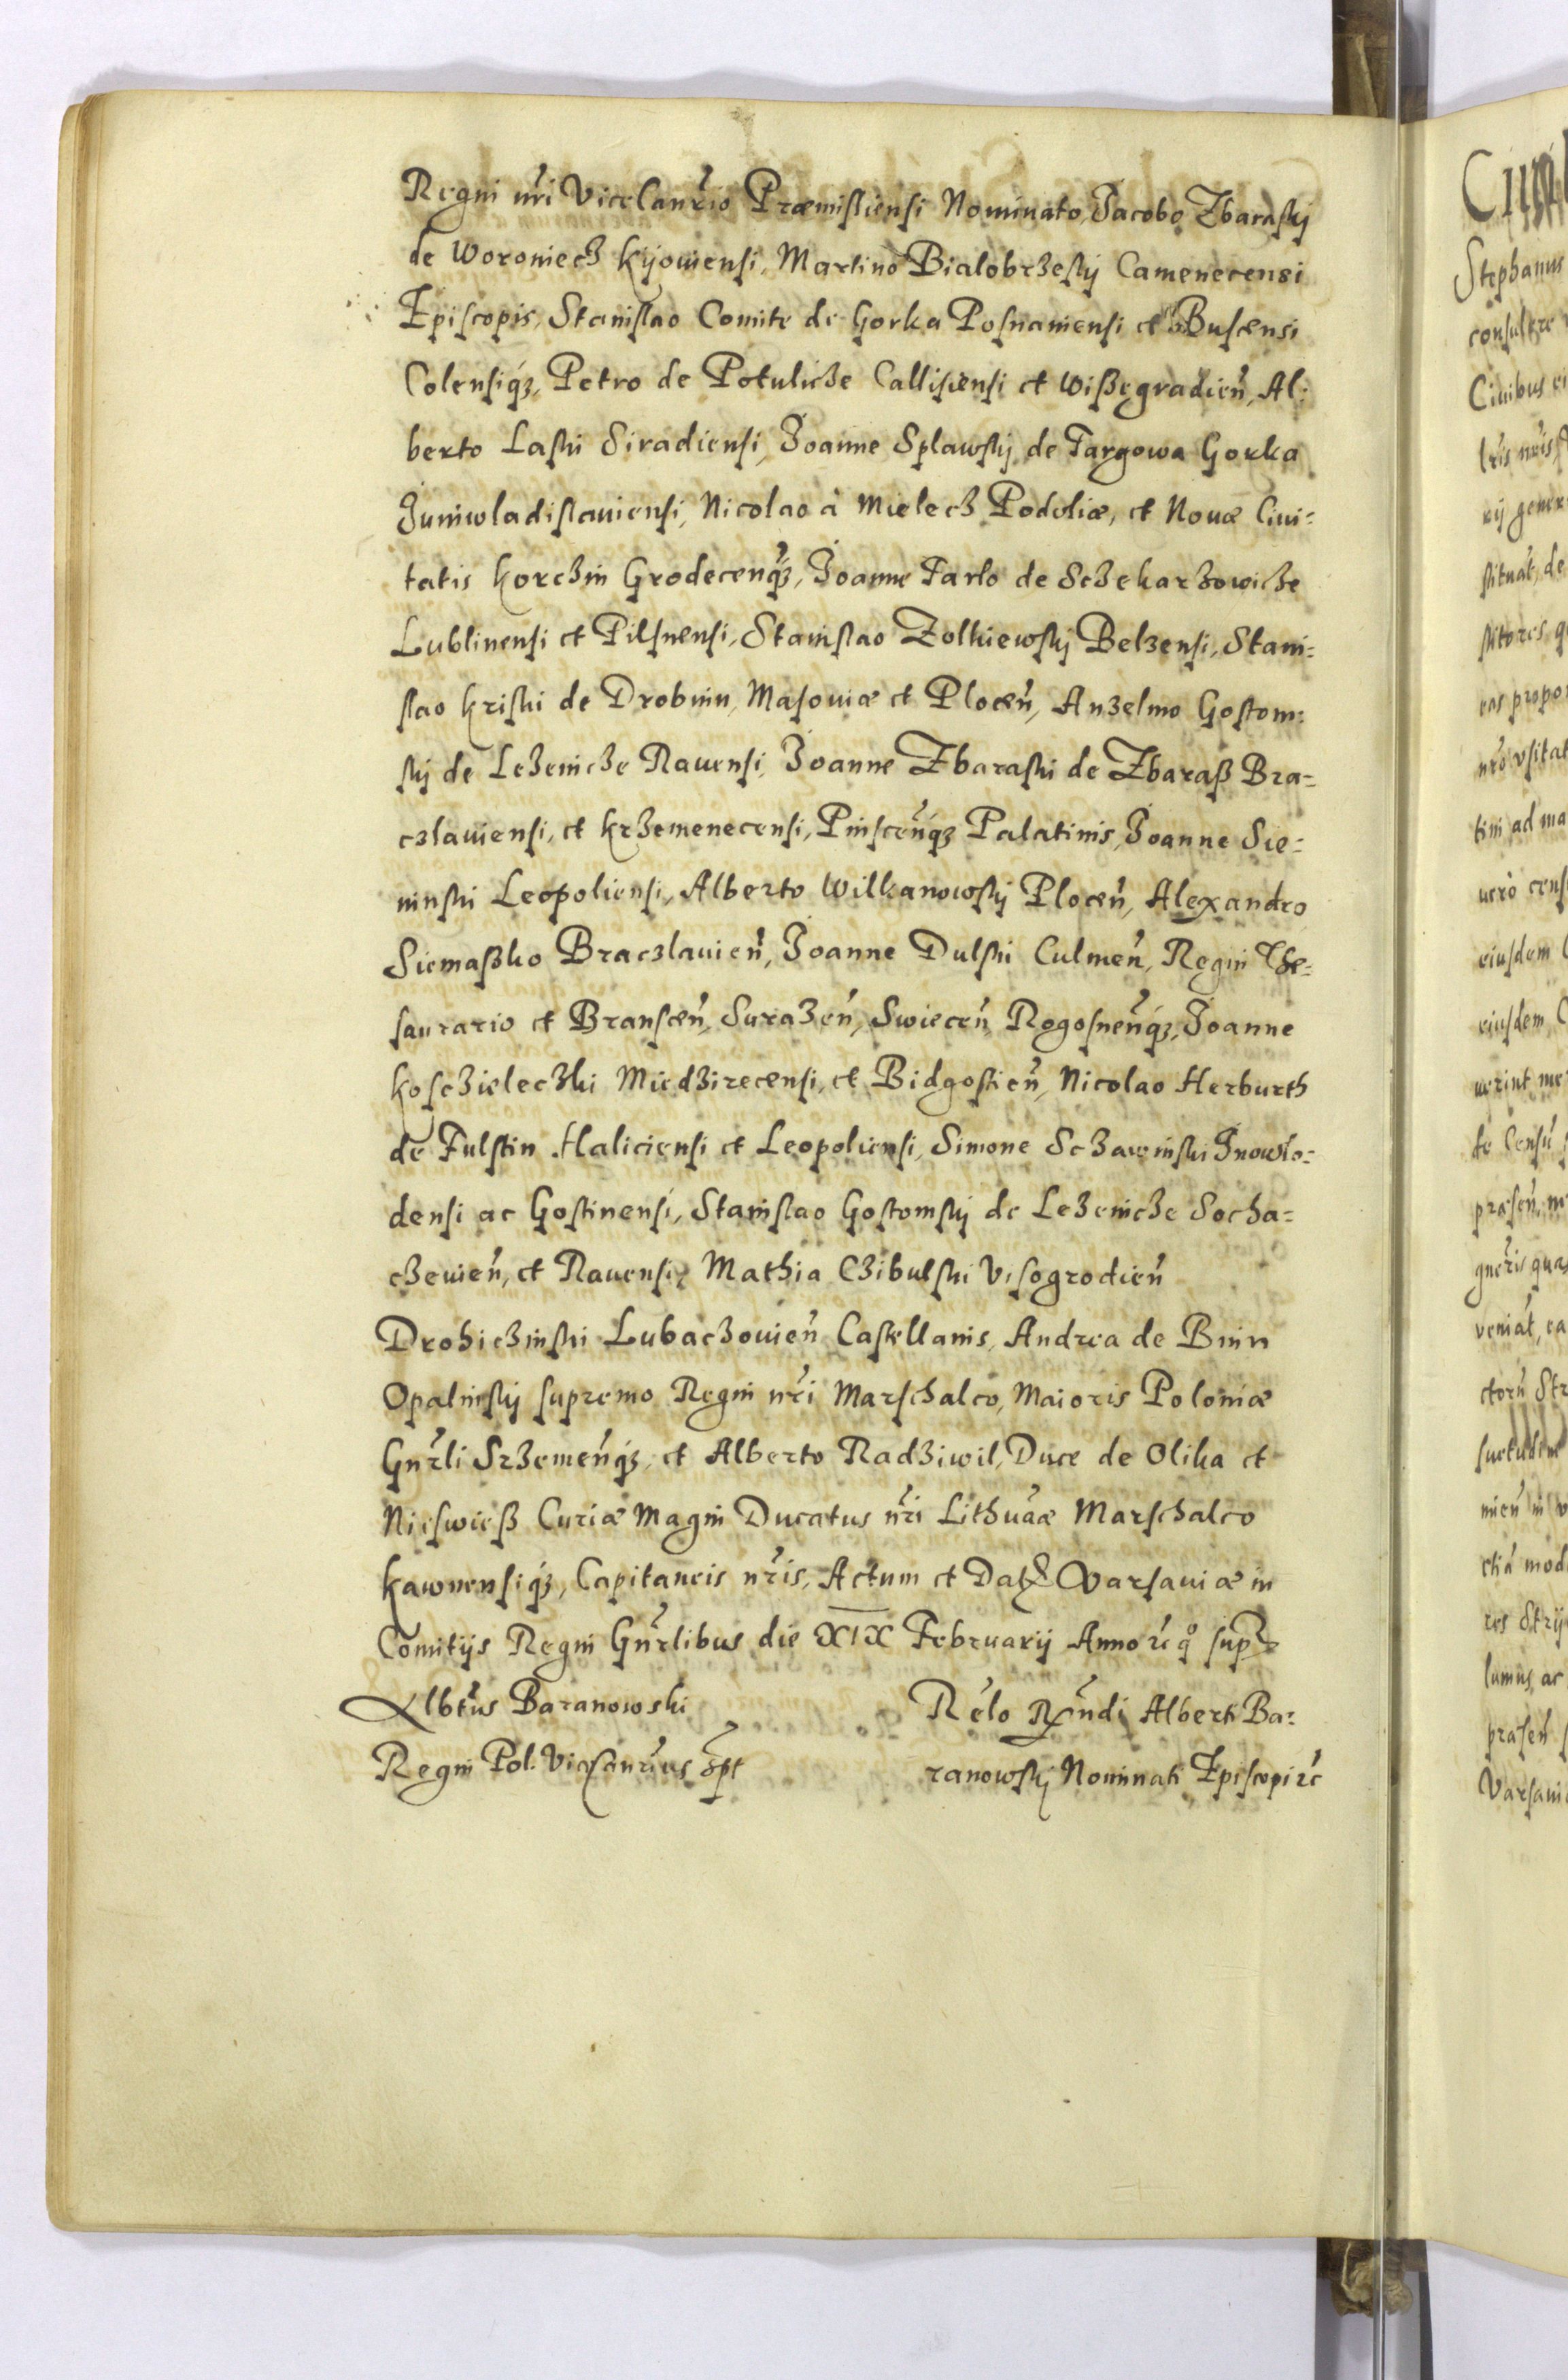 Regni nri Vicecanrio Præmisliensi Nominato, Jacobo Zbaraskj
de Woroniecz Kijoviensi, Martino Bialobrzeskj Camenecensi
Episcopis, Stanislao Comite de Gorka Posnaniensi et Buscensi
Colensiq́3, Petro de Potulicze Callisiensi et Wißegradień, Al:
berto Laski Siradiensi, Joanne Splawskj de Targowa Gorka
Juniwladislauiensi, Nicolao à Mielecz Podoliæ, et Nouæ Ciui:
tatis Korczin Grodecenq́3, Joanne Tarlo de Sczekarzowicze
Lublinensi et Pilsnensi, Stanislao Zolkiewskj Belzensi, Stani:
slao Kriski de Drobnin, Masouiæ et Ploceń, Anzelmo Gostom:
skj de Lezenicze Rauensi, Joanne Zbaraski de Zbaraß Bra-
czlauiensi, et Krzemenecensi, Pinsceńq́3 Palatinis, Joanne Sie:
ninski Leopoliensi, Alberto Wilkanowskj Ploceń, Alexandro
Siemaßko Braczlauień, Joanne Dulski Culmeń, Regni The:
saurario et Bransceń, Surazeń, Swieceń Rogosneńq́3, Joanne
Kosczieleczki Miedzirecensi, et Bidgostień, Nicolao Herburth
de Fulstin Haliciensi et Leopoliensi, Simone Sczawinski Jnowlo:
densi ac Gostinensi, Stanislao Gostomskj de Lezenicze Socha=
czeuień, et Rauensi, Mathia Czibulski Visogrodień
Drohiczinski Lubaczouień Castellanis, Andrea de Bnin
Opalinskj supremo Regni nri Marschalco, Maioris Poloniæ
Gnrli Srzemeńq́3, et Alberto Radziwil, Duce de Olika et
Nieswieß Curiæ Magni Ducatus nri Lithuaæ Marschalco
Kawnensiq́3, Capitaneis nris, Actum et Dat Varsauiæ in
Comitijs Regni Gnrlibus die XIX Februarij Anno
Albtus Baranowski
Regni Pol. Vicecanrius
Relo Rndi Alberti Ba:
ranowskj Nominati Episcopi
Stephanus
consultre
Ciuibus
situat, de
sitores
eas propo
nro vsitat
tini ad ma
uero cens
eiusdem
eiusdem
uerint me
præseń
gnris quas
veniat, ea
lumus, ac
præseń
Varsaui